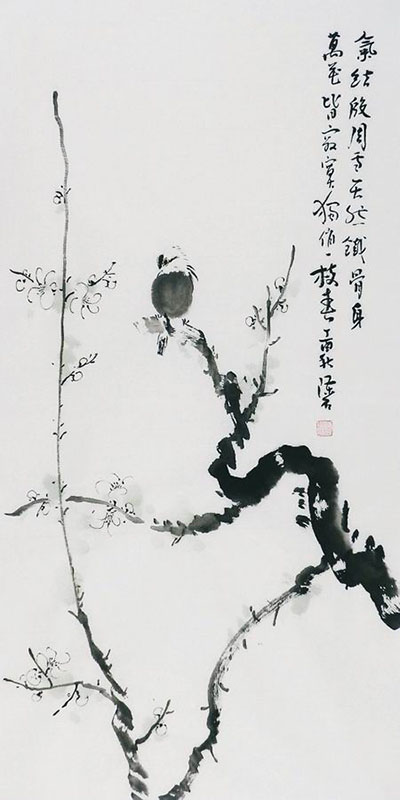 氣結殷周雪天然鐵骨身
萬花皆寂寞獨俏一枝春丁酉秋